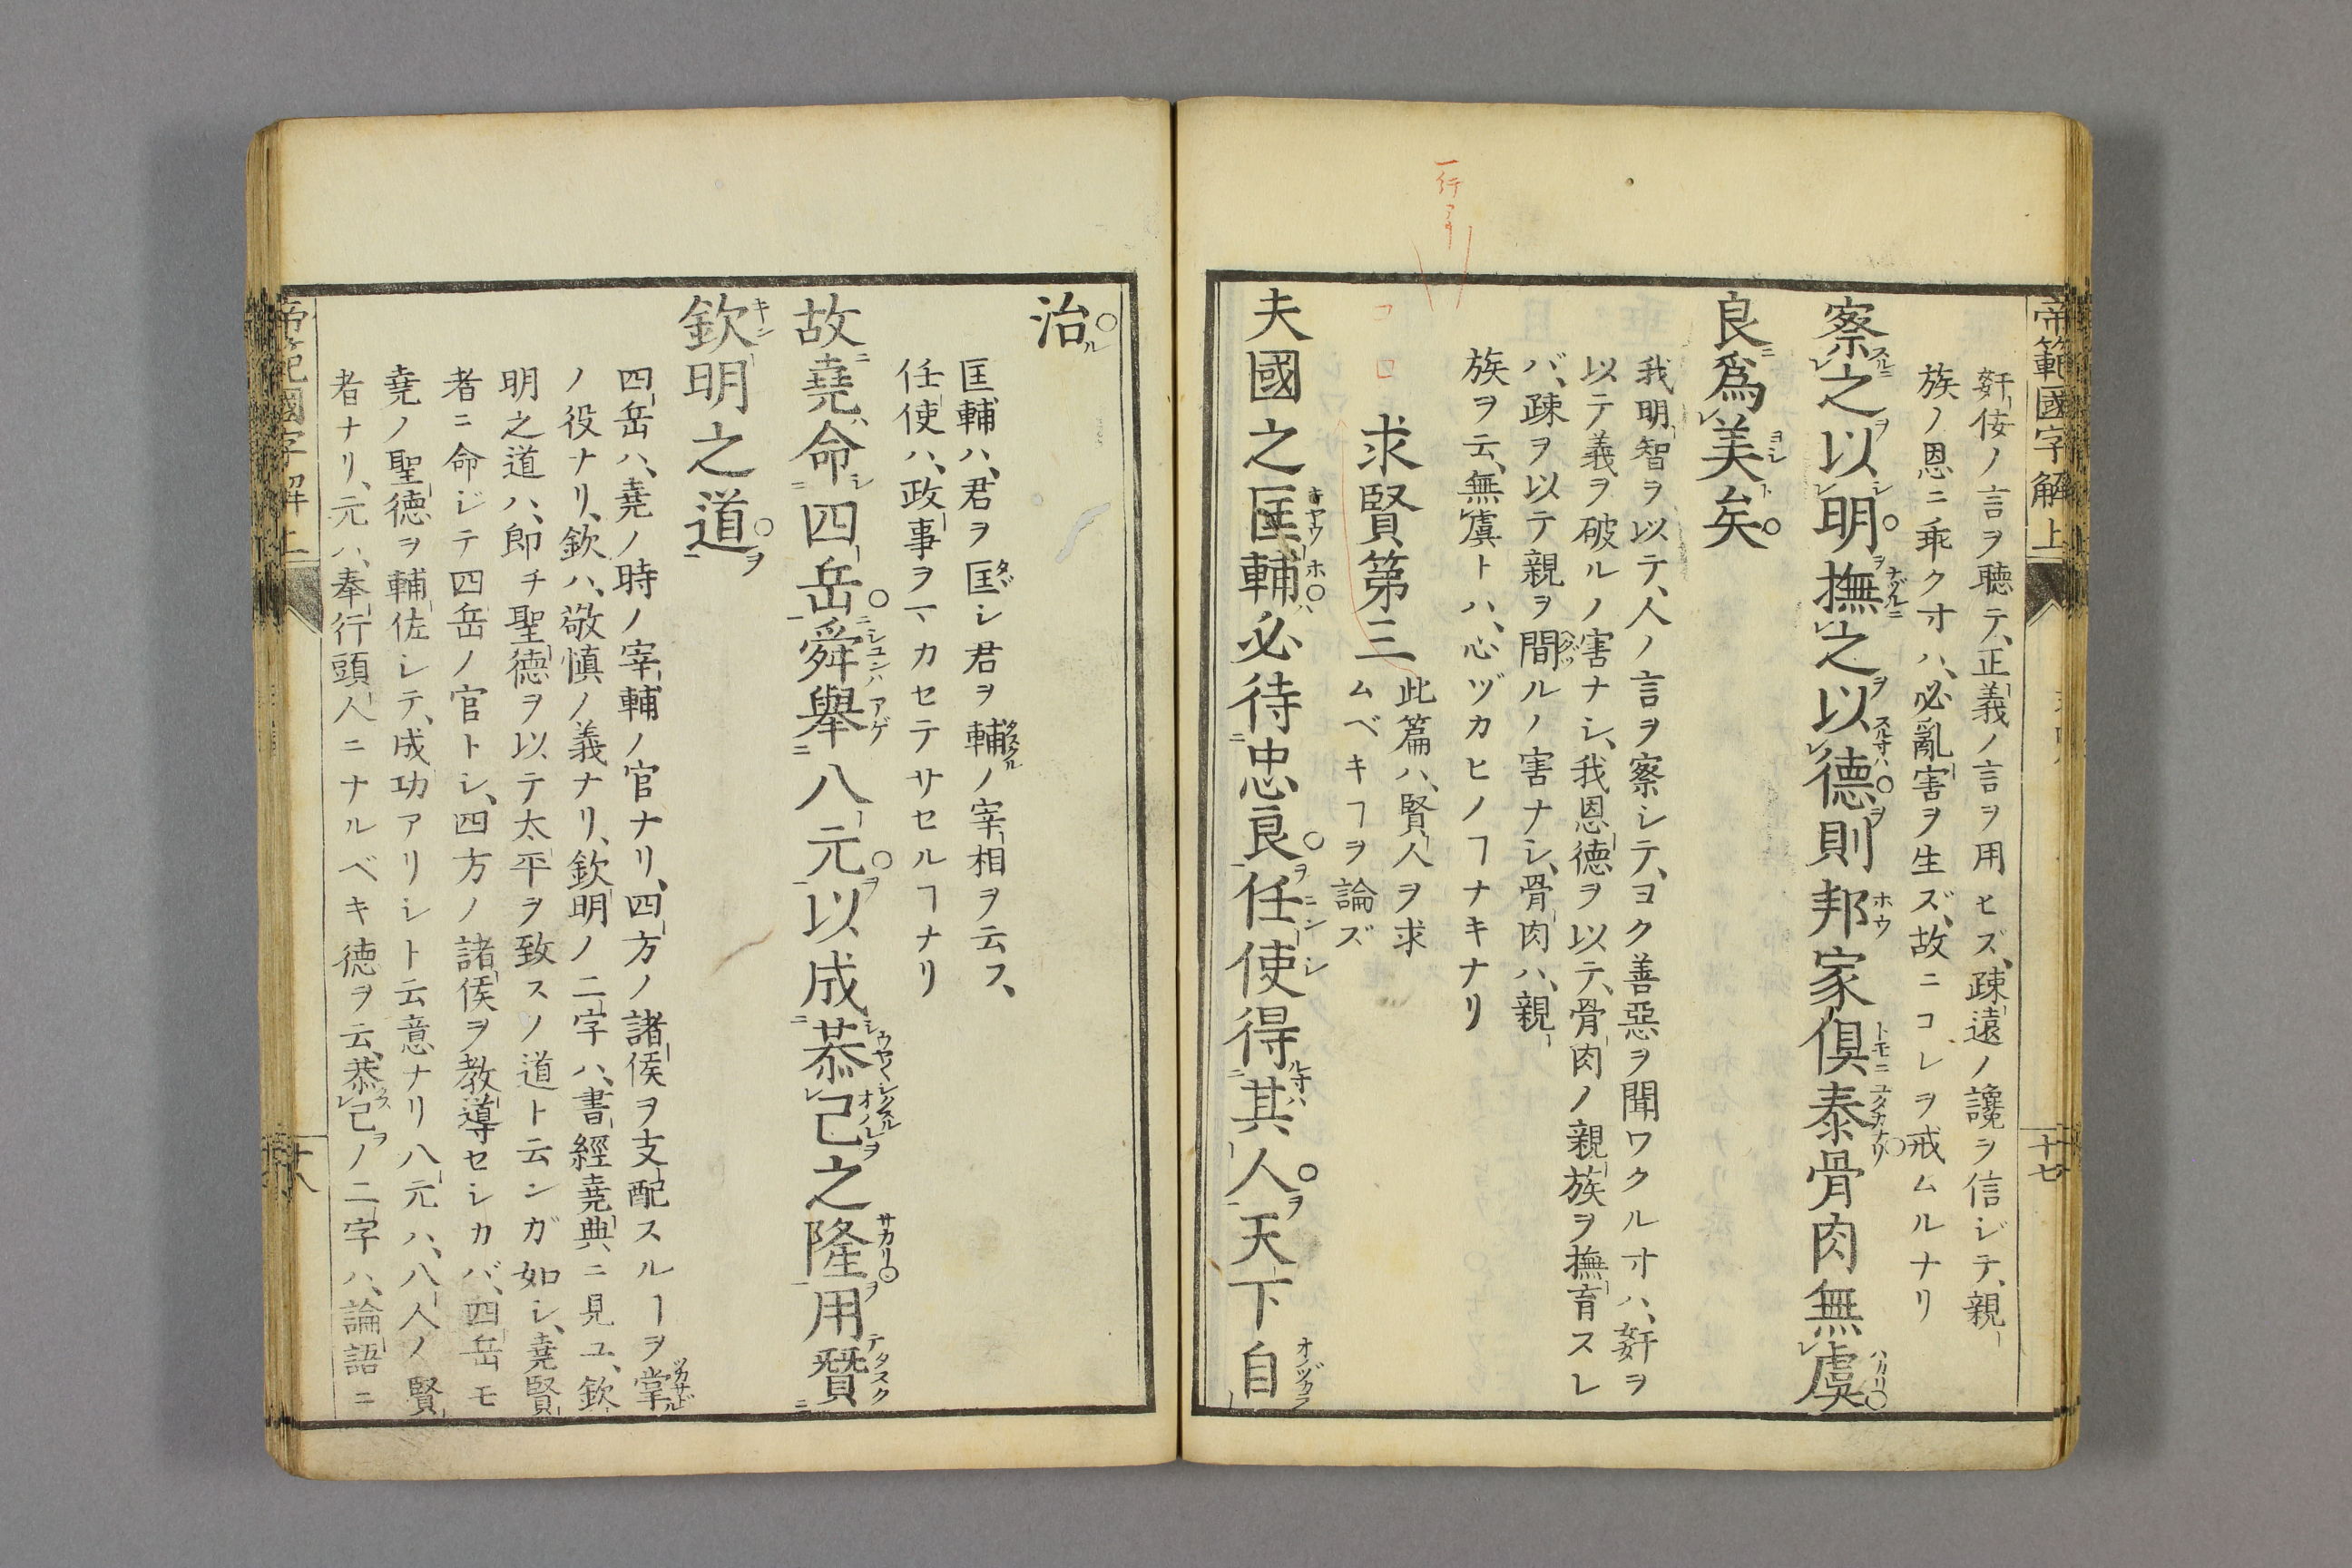 帝範國字解上
十七
姧佞ノ言ヲ聴テ、正義ノ言ヲ用ヒズ、疎遠ノ讒ヲ信ジテ、親
族ノ恩ニ乖クヿハ、必亂害ヲ生ズ、故ニコレヲ戒ムルナリ
察之以明撫之以德則邦家俱泰骨肉無虞
良爲美矣
我明智ヲ以テ、人ノ言ヲ察シテ、ヨク善惡ヲ聞ワクルヿハ、姧ヲ
以テ義ヲ破ルノ害ナシ、我恩德ヲ以テ、骨肉ノ親族ヲ撫育スレ
バ、疎ヲ以テ親ヲ間ルノ害ナシ、骨肉ハ、親
族ヲ云、無虞トハ、心ヅカヒノヿナキナリ
一行
求賢第三
此篇ハ、賢人ヲ求
ムベキヿヲ論ズ
夫國之匡輔必待忠良任使得其人天下自
治
匡輔ハ、君ヲ匡シ君ヲ輔ノ宰相ヲ云フ、
任使ハ、政事ヲマカセテサセルヿナリ
故堯命四岳舜舉八元以成恭己之隆用贊
欽明之道
四岳ハ、堯ノ時ノ宰輔ノ官ナリ、四方ノ諸侯ヲ支配スルヿヲ掌
ノ役ナリ、欽ハ、敬愼ノ義ナリ、欽明ノ二字ハ、書經堯典ニ見ユ、欽
明之道ハ、即チ聖德ヲ以テ太平ヲ致スノ道ト云ンガ如シ、堯賢
者ニ命ジテ四岳ノ官トシ、四方ノ諸侯ヲ教導セシカバ、四岳モ
堯ノ聖德ヲ輔佐シテ、成功アリシト云意ナリ八元ハ、八人ノ賢
者ナリ、元ハ、奉行頭人ニナルベキ德ヲ云、恭己ノ二字ハ、論語ニ